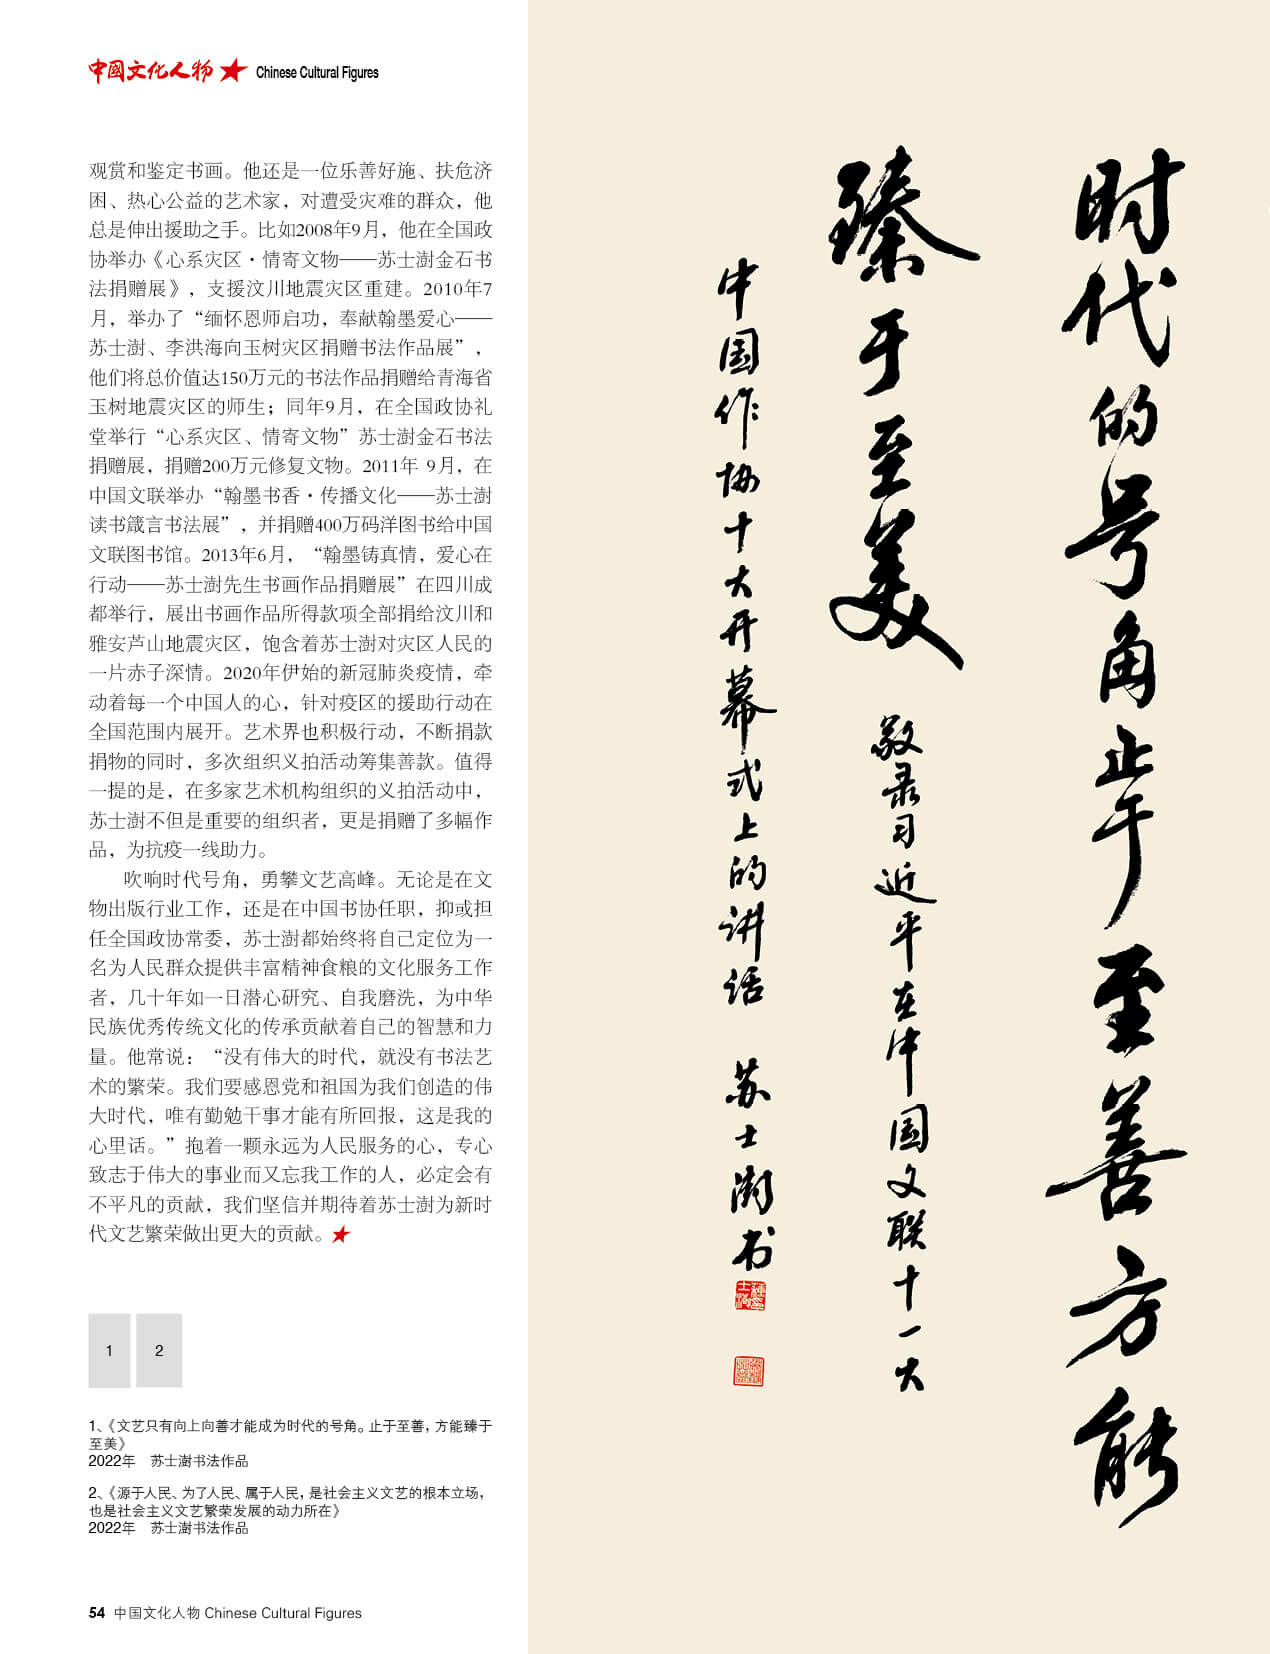 中國文化人物 ★ Chinese Cultural Figures
观赏和鉴定书画。他还是一位乐善好施、扶危济
困、热心公益的艺术家，对遭受灾难的群众，他
总是伸出援助之手。比如2008年9月，他在全国政
协举办《心系灾区·情寄文物——苏士澍金石书
法捐赠展》，支援汶川地震灾区重建。2010年7
月，举办了“缅怀恩师启功，奉献翰墨爱心——
苏士澍、李洪海向玉树灾区捐赠书法作品展”，
他们将总价值达150万元的书法作品捐赠给青海省
玉树地震灾区的师生；同年9月，在全国政协礼
堂举行“心系灾区、情寄文物”苏士澍金石书法
捐赠展，捐赠200万元修复文物。2011年 9月，在
中国文联举办“翰墨书香·传播文化——苏士澍
读书箴言书法展”，并捐赠400万码洋图书给中国
文联图书馆。2013年6月，“翰墨铸真情，爱心在
行动——苏士澍先生书画作品捐赠展”在四川成
都举行，展出书画作品所得款项全部捐给汶川和
雅安芦山地震灾区，饱含着苏士澍对灾区人民的
一片赤子深情。2020年伊始的新冠肺炎疫情，牵
动着每一个中国人的心，针对疫区的援助行动在
全国范围内展开。艺术界也积极行动，不断捐款
捐物的同时，多次组织义拍活动筹集善款。值得
一提的是，在多家艺术机构组织的义拍活动中，
苏士澍不但是重要的组织者，更是捐赠了多幅作
品，为抗疫一线助力。
吹响时代号角，勇攀文艺高峰。无论是在文
物出版行业工作，还是在中国书协任职，抑或担
任全国政协常委，苏士澍都始终将自己定位为一
名为人民群众提供丰富精神食粮的文化服务工作
者，几十年如一日潜心研究、自我磨洗，为中华
民族优秀传统文化的传承贡献着自己的智慧和力
量。他常说：“没有伟大的时代，就没有书法艺
术的繁荣。我们要感恩党和祖国为我们创造的伟
大时代，唯有勤勉干事才能有所回报，这是我的
心里话。”抱着一颗永远为人民服务的心，专心
致志于伟大的事业而又忘我工作的人，必定会有
不平凡的贡献，我们坚信并期待着苏士澍为新时
代文艺繁荣做出更大的贡献。★
1 2
1、《文艺只有向上向善才能成为时代的号角。止于至善，方能臻于
至美》
2022年 苏士澍书法作品
2、《源于人民、为了人民、属于人民，是社会主义文艺的根本立场，
也是社会主义文艺繁荣发展的动力所在》
2022年 苏士澍书法作品
54 中国文化人物 Chinese Cultural Figures
时代的号角止于至善方能
臻于至美 敬录习近平在中国文联十一大
中国作协十大开幕式上的讲话 苏士澍书